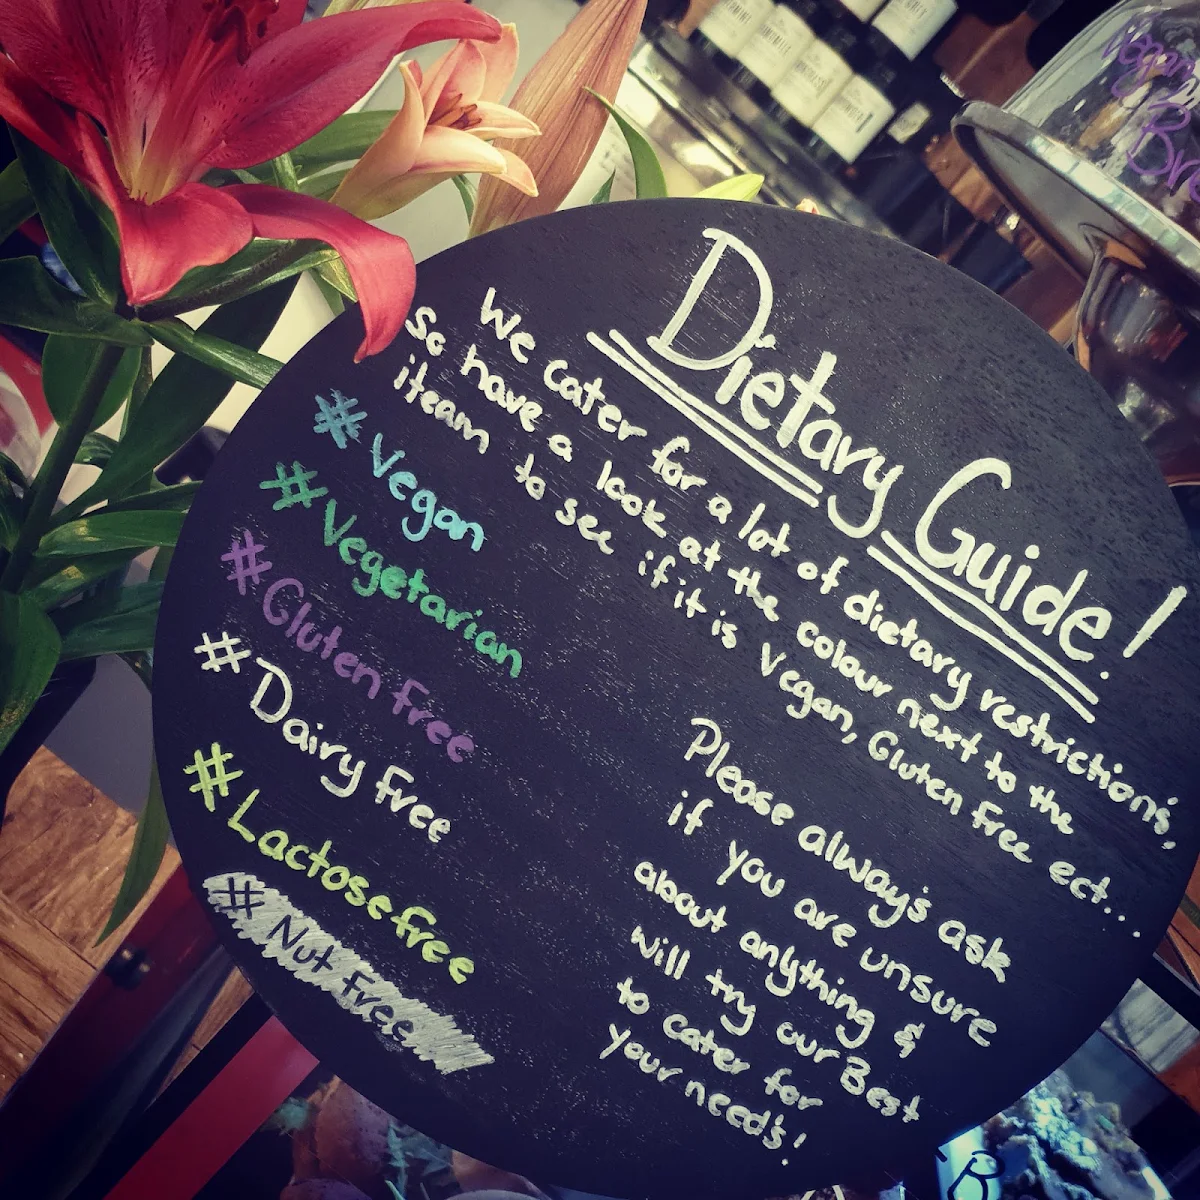 Dietary Guide!
We cater for a lot of dietary restriction's,
So have a look at the colour next to the
iteam to see if it is Vegan, Gluten Free ect...
# Vegan
# Vegetarian
# Gluten Free
# Dairy Free
# Lactosefree
# Nut Free
Please alway's ask
if you are unsure
about anything &
will try our Best
to cater for
your need's!
Vegan